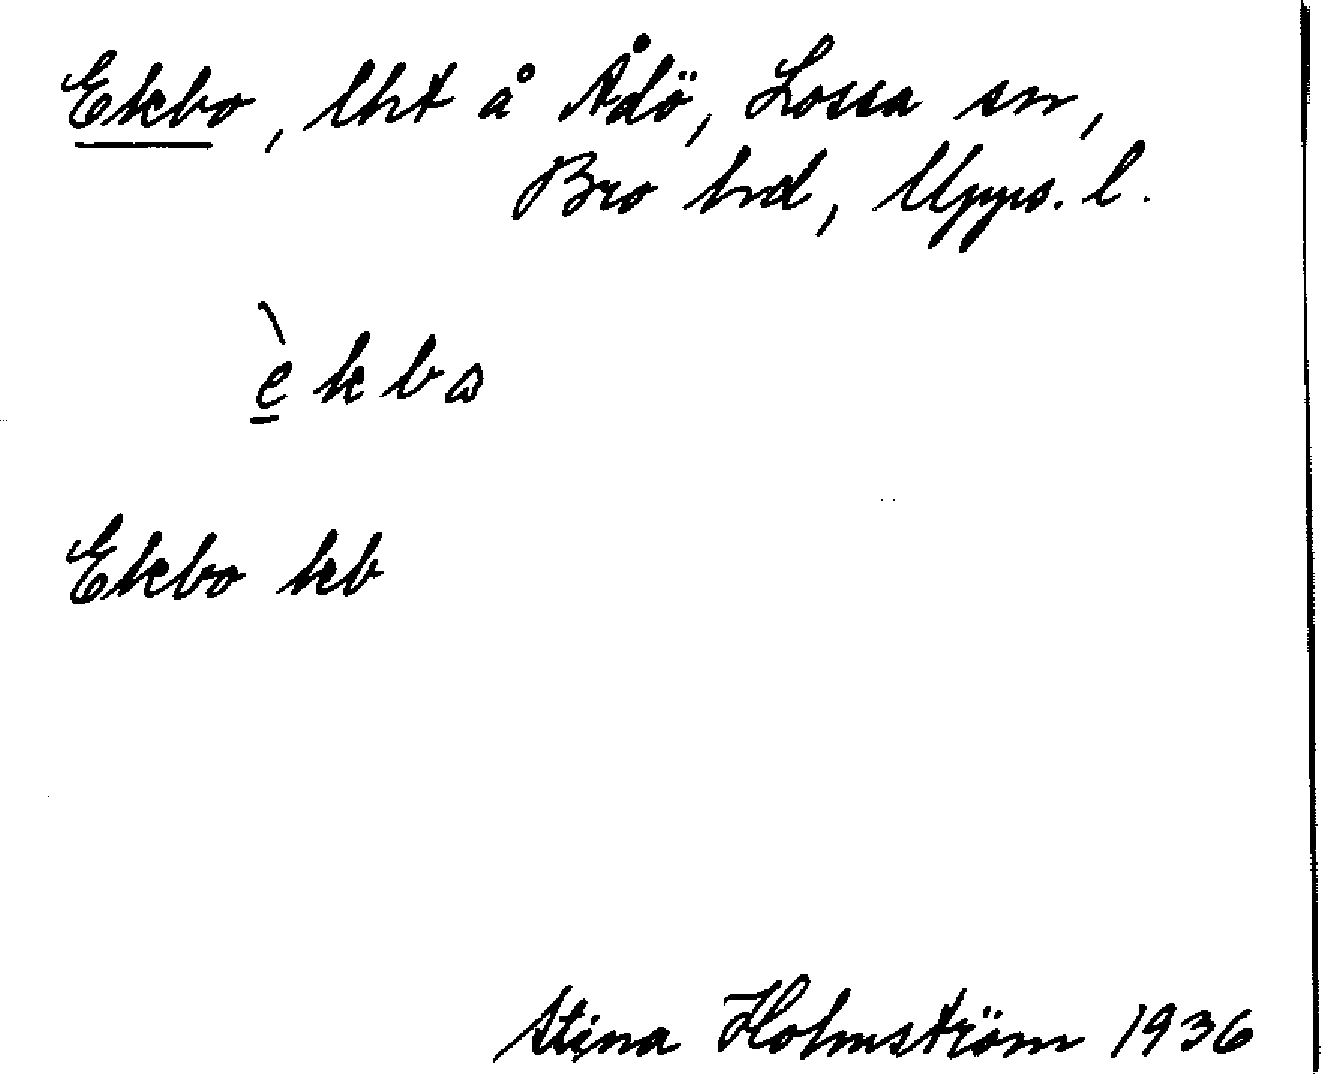 Ekbo, lht å Ådö, Lossa sn,
Bro hd, Upps. l.
èkbω
Ekbo kb
Stina Holmström 1936